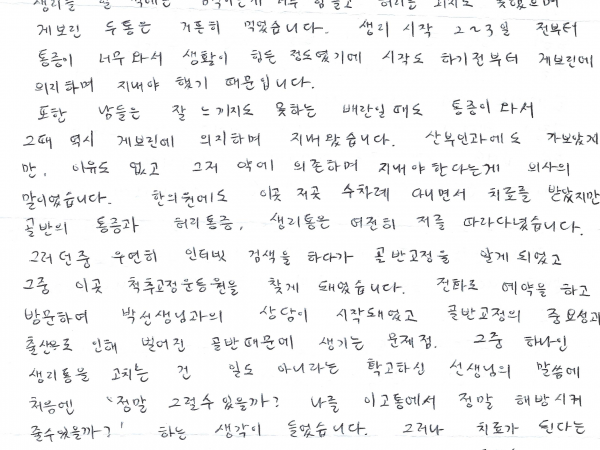 생리를 할 때에는 허리를
게보린 두통은 거른히 먹었습니다. 생리 시작 2~3일 전부터
통증이 너무 와서 생활이 힘든 정도였기에 시작도 하기전부터 게보린에
의지하며 지내야 했기 때문입니다.
또한 남들은 잘 느끼지도 못하는 배란일 때도 통증이 와서
그때 역시 게보린에 의지하며 지내왔습니다. 산부인과에도 가보았지
만, 이유도 없고 그저 약에 의존하며 지내야 한다는게 의사의
말이었습니다. 한의원에도 이곳 저곳 수차례 다니면서 치료를 받았지만
골반의 통증과 허리통증, 생리통은 여전히 저를 따라다녔습니다.
그러던중 우연히 인터넷 검색을 하다가 골반교정을 알게 되었고
그중 이곳 척추교정운동원을 찾게 돼었습니다. 전화로 예약을 하고
방문하여 박선생님과의 상담이 시작돼었고 골반교정의 중요성과
출산으로 인해 벌어진 골반때문에 생기는 문제점. 그중 하나인
생리통을 고치는 건 일도 아니라는 확고하신 선생님의 말씀에
처음엔 '정말 그럴수 있을까? 나를 이고통에서 정말 해방시켜
줄수있을까?' 하는 생각이 들었습니다. 그러나 치료가 된다는